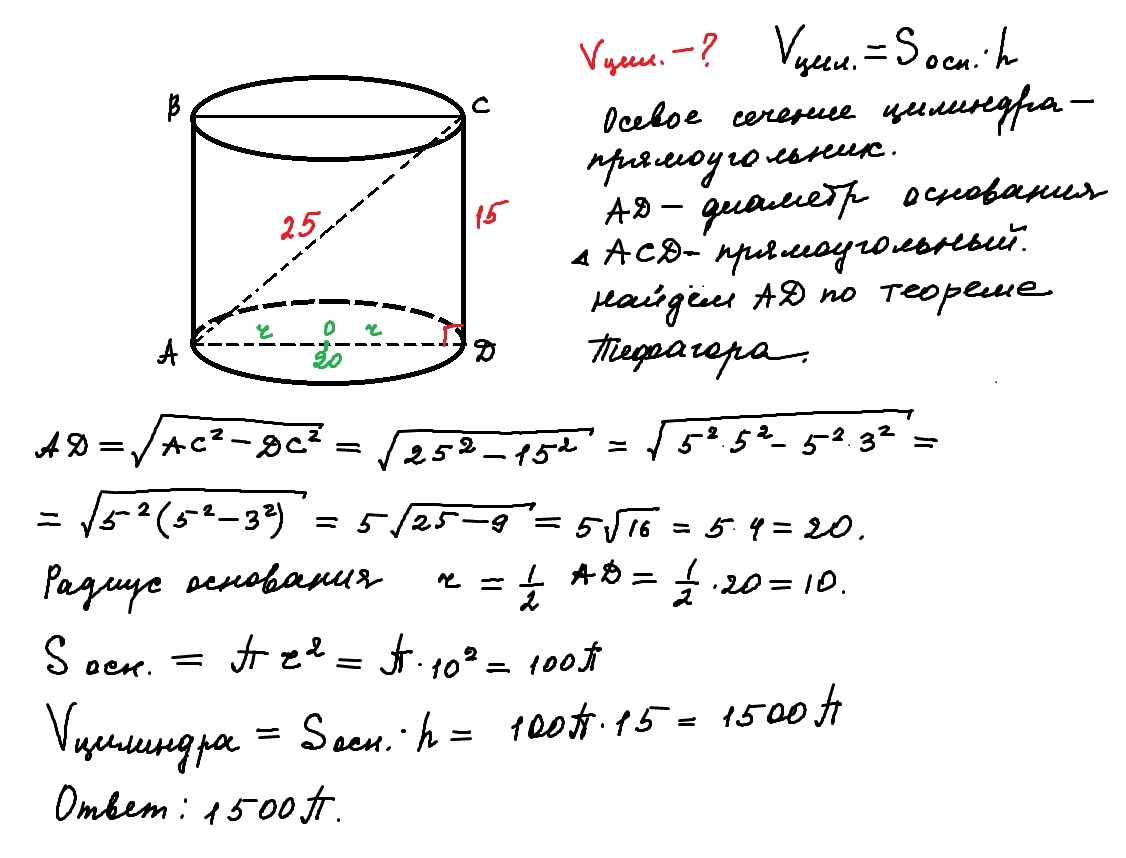 Vцил. – ? Vцил. = Sосн. · h
Осевое сечение цилиндра –
прямоугольник.
AD – диаметр основания
△ ACD – прямоугольный.
найдём AD по теореме
Пифагора.
B C
25 15
r O r
A 20 D
AD = √(AC² – DC²) = √(25² – 15²) = √(5²·5² – 5²·3²) =
= √(5²(5² – 3²)) = 5√(25 – 9) = 5√16 = 5·4 = 20.
Радиус основания r = 1/2 AD = 1/2 · 20 = 10.
S осн. = π r² = π · 10² = 100π
Vцилиндра = Sосн. · h = 100π · 15 = 1500π
Ответ: 1500π.